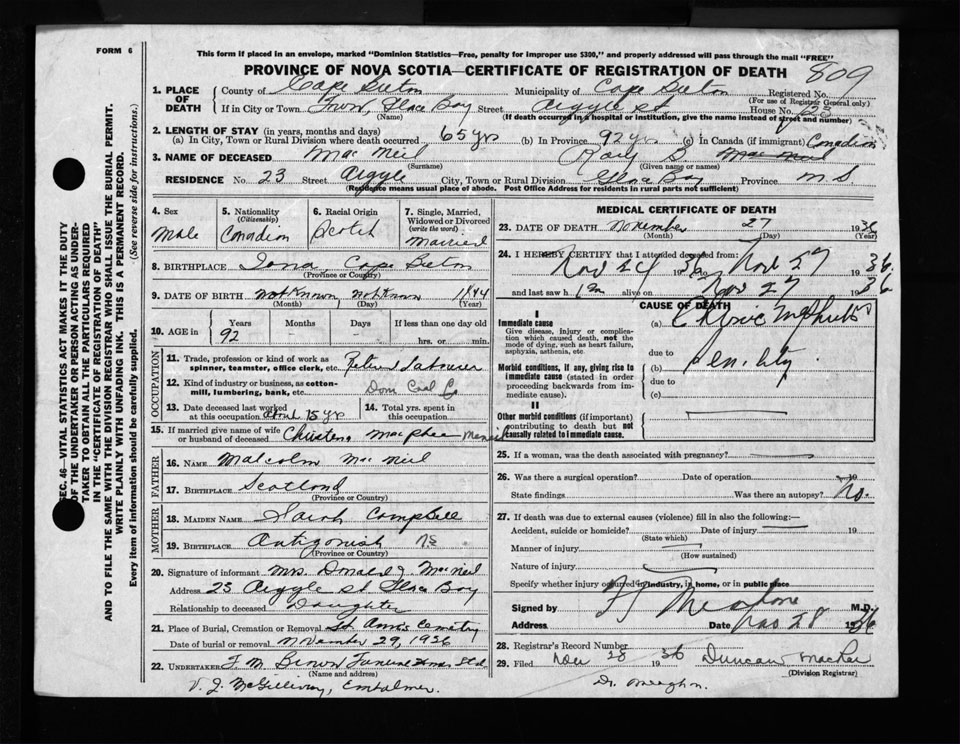 FORM 6
This form if placed in an envelope, marked "Dominion Statistics—Free, penalty for improper use $300," and properly addressed will pass through the mail "FREE"
PROVINCE OF NOVA SCOTIA—CERTIFICATE OF REGISTRATION OF DEATH 809
1. PLACE OF DEATH
County of Cape Breton Municipality of Cape Breton Registered No.
(For use of Registrar General only)
If in City or Town Town, Glace Bay Street Argyle St House No. 23
(Name) (If death occurred in a hospital or institution, give the name instead of street and number)
2. LENGTH OF STAY (in years, months and days)
(a) In City, Town or Rural Division where death occurred 65 yrs (b) In Province 92 yrs (c) In Canada (if immigrant) Canadian
3. NAME OF DECEASED Mac Neil Rory S. Mac Neil
(Surname) (Given name or names)
RESIDENCE No. 23 Street Argyle City, Town or Rural Division Glace Bay Province N.S.
(Residence means usual place of abode. Post Office Address for residents in rural parts not sufficient)
4. Sex Male
5. Nationality (Citizenship) Canadian
6. Racial Origin Scotch
7. Single, Married, Widowed or Divorced (write the word) Married
8. BIRTHPLACE Iona, Cape Breton
(Province or Country)
9. DATE OF BIRTH Not Known Not Known 1844
(Month) (Day) (Year)
10. AGE in Years 92 Months Days If less than one day old
hrs. or min.
OCCUPATION
11. Trade, profession or kind of work as spinner, teamster, office clerk, etc. Retired Labourer
12. Kind of industry or business, as cotton-mill, lumbering, bank, etc. Dom Coal C
13. Date deceased last worked at this occupation about 15 yrs
14. Total yrs. spent in this occupation
15. If married give name of wife or husband of deceased Christena MacPhee MacNeil
FATHER
16. NAME Malcolm Mac Neil
17. BIRTHPLACE Scotland
(Province or Country)
MOTHER
18. MAIDEN NAME Sarah Campbell
19. BIRTHPLACE Antigonish
(Province or Country)
20. Signature of informant Mrs. Donald J. Mac Neil
Address 23 Argyle St. Glace Bay
Relationship to deceased Daughter
21. Place of Burial, Cremation or Removal St. Ann's Cemetery
Date of burial or removal November 29, 1936
22. UNDERTAKER F. M. Brown Funeral Home Ltd
(Name and address)
V. J. McGillivray, Embalmer.
MEDICAL CERTIFICATE OF DEATH
23. DATE OF DEATH November 27 1936
(Month) (Day) (Year)
24. I HEREBY CERTIFY that I attended deceased from:
Nov 24 1936 to Nov 27 1936
and last saw h im alive on Nov 27 1936
CAUSE OF DEATH
I
Immediate cause
Give disease, injury or complication which caused death, not the mode of dying, such as heart failure, asphyxia, asthenia, etc.
(a) Chronic Nephritis
due to
Morbid conditions, if any, giving rise to immediate cause (stated in order proceeding backwards from immediate cause).
(b) Senility
due to
(c)
II
Other morbid conditions (if important) contributing to death but not causally related to immediate cause.
25. If a woman, was the death associated with pregnancy?
26. Was there a surgical operation? Date of operation 19
State findings Was there an autopsy? No.
27. If death was due to external causes (violence) fill in also the following:—
Accident, suicide or homicide? Date of injury 19
(State which)
Manner of injury
(How sustained)
Nature of injury
Specify whether injury occurred in industry, in home, or in public place
Signed by M.D.
Address Date Nov 28 1936
28. Registrar's Record Number
29. Filed Nov 28 1936 Duncan MacRae
(Division Registrar)
Dr. Meaghn.
SEC. 46—VITAL STATISTICS ACT MAKES IT THE DUTY OF THE UNDERTAKER OR PERSON ACTING AS UNDERTAKER TO OBTAIN ALL THE PARTICULARS REQUIRED IN THE "CERTIFICATE OF REGISTRATION OF DEATH"
AND TO FILE THE SAME WITH THE DIVISION REGISTRAR WHO SHALL ISSUE THE BURIAL PERMIT.
WRITE PLAINLY WITH UNFADING INK. THIS IS A PERMANENT RECORD.
Every item of information should be carefully supplied. (See reverse side for instructions.)